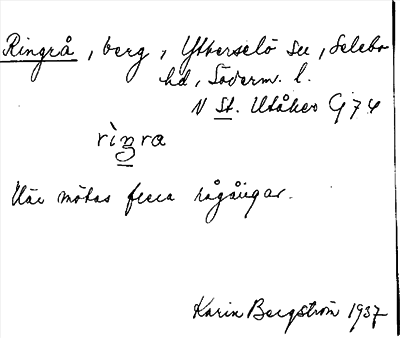 Ringrå, berg, Ytterselö sn, Selebo
hd, Söderm. l.
N St. Utåker Gj 74
rìŋra
Här mötas flera rågångar.
Karin Bergström 1937